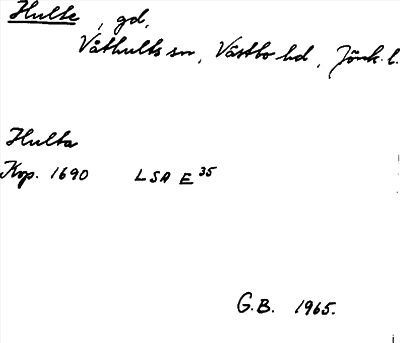 Hulte, gd,
Våthults sn, Västbo hd, Jönk. l.
Hulta
Kop. 1690 LSA E 35
G.B. 1965.